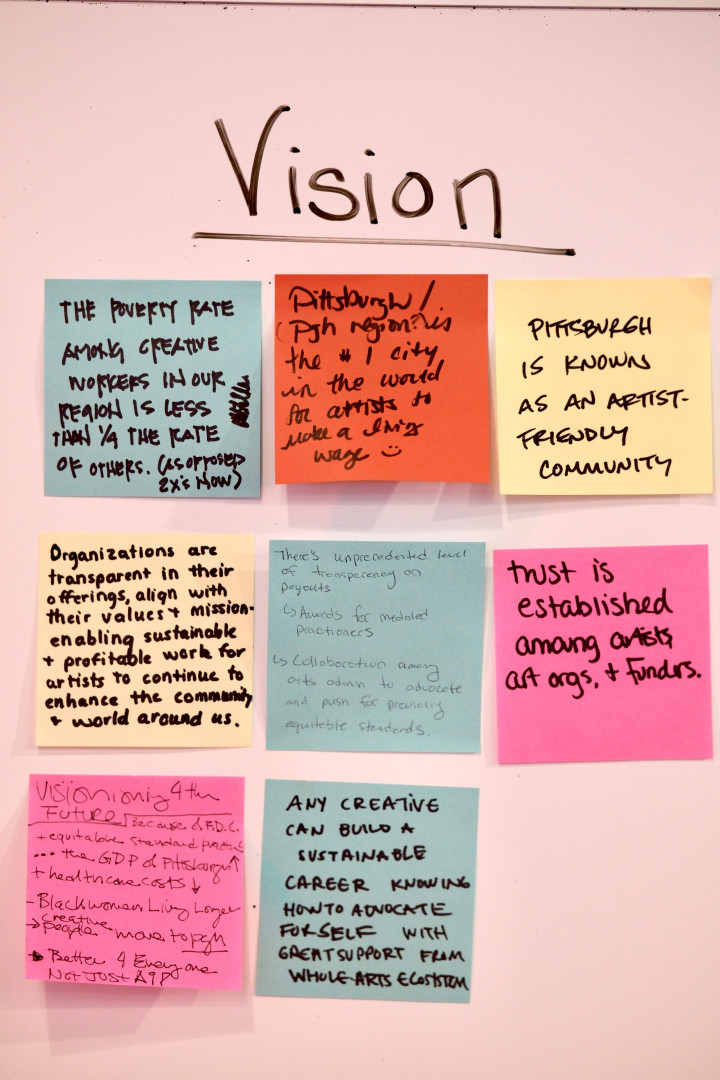 Vision
THE POVERTY RATE
AMONG CREATIVE
WORKERS IN OUR
REGION IS LESS
THAN 1/4 THE RATE
OF OTHERS. (AS OPPOSED
2X'S NOW)
Pittsburgh/
(Pgh region?) is
the #1 city
in the world
for artists to
make a living
wage ☺
PITTSBURGH
IS KNOWN
AS AN ARTIST-
FRIENDLY
COMMUNITY
Organizations are
transparent in their
offerings, align with
their values + mission-
enabling sustainable
+ profitable work for
artists to continue to
enhance the community
+ world around us.
There's unprecedented level
of transparency on
payouts
↳ Awards for
Practitioners
↳ Collaboration among
arts admin to advocate
and push for
equitable standards.
trust is
established
among artists,
art orgs, + funders.
Visionioning 4 the
Future Because of F.D.C.
+ equitable standard
... the GDP of Pittsburgh ↑
+ healthcare costs ↓
- Black women Living Longer
→ creative
people move to pgh
→ Better 4 Everyone
Not Just
ANY CREATIVE
CAN BUILD A
SUSTAINABLE
CAREER KNOWING
HOW TO ADVOCATE
FOR SELF WITH
GREAT SUPPORT FROM
WHOLE ARTS ECOSYSTEM